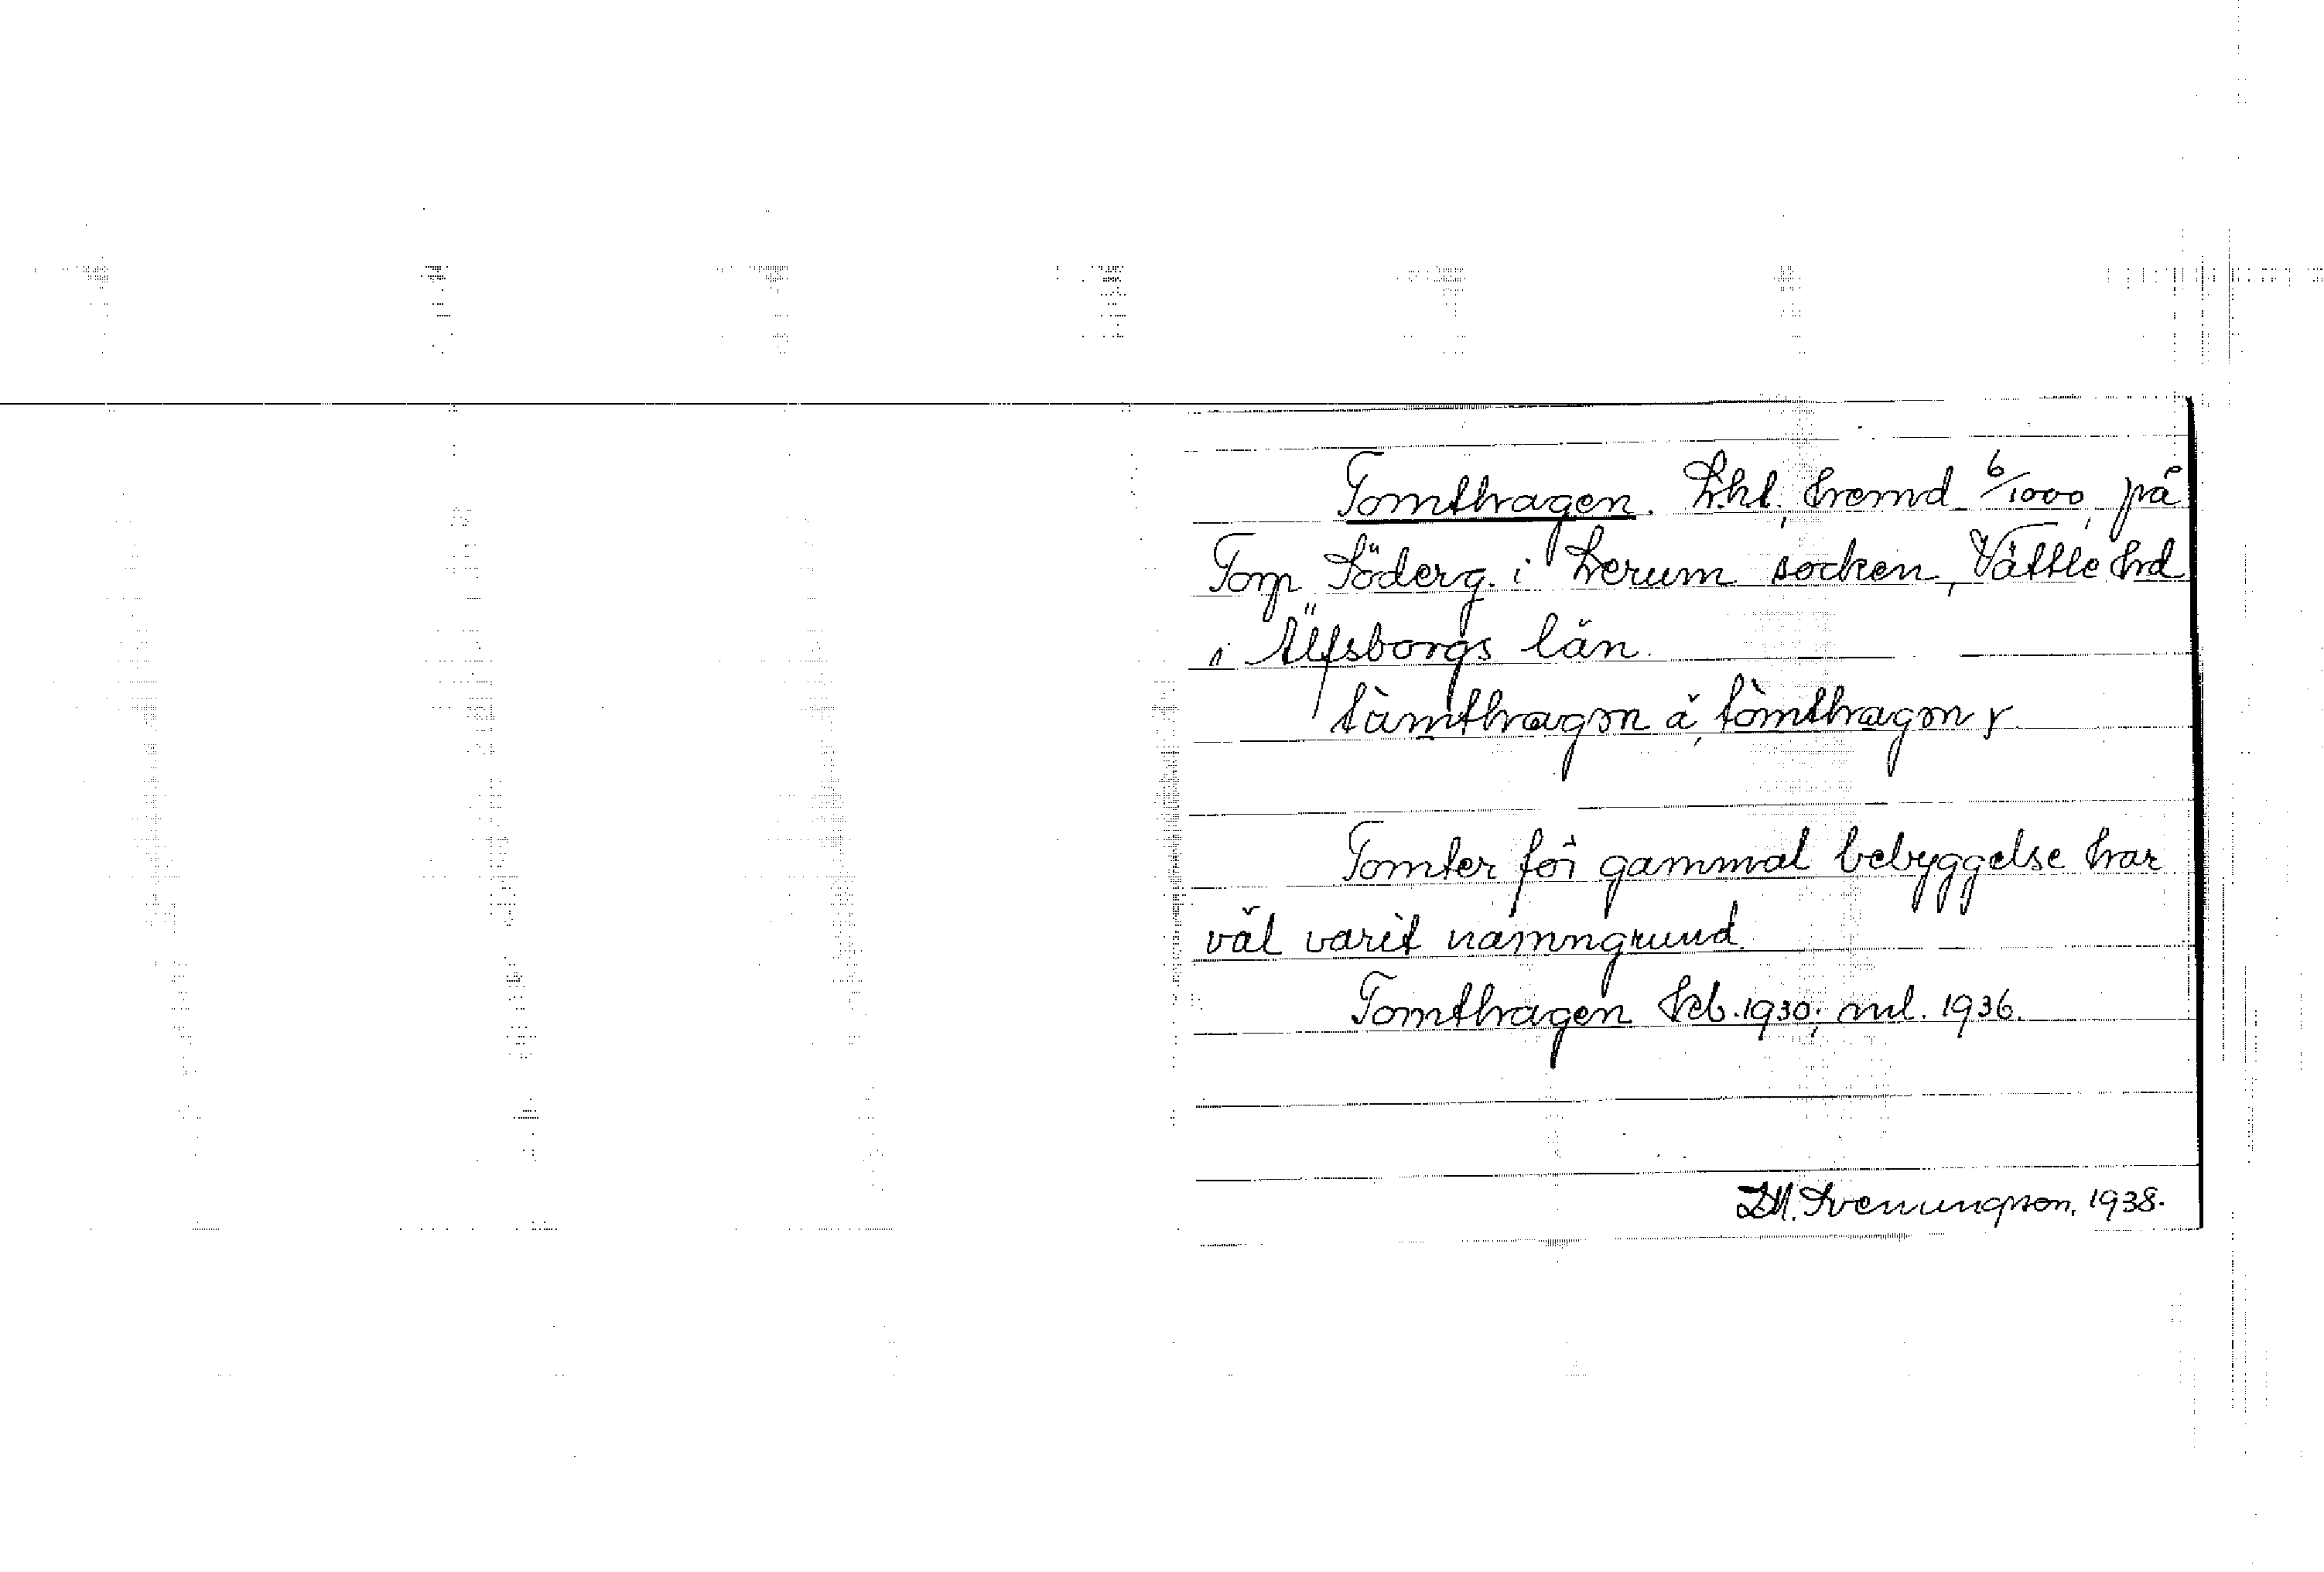 Tomthagen. Lht, hemd 6/1000, på
Torp Söderg. i Lerum socken, Vättle hd
i Älfsborgs län.
tàmthagən ä, tòmthagən y
Tomter för gammal bebyggelse har
väl varit namngrund.
Tomthagen hcb. 1930; ml. 1936.
D.M. Svenungsson, 1938.